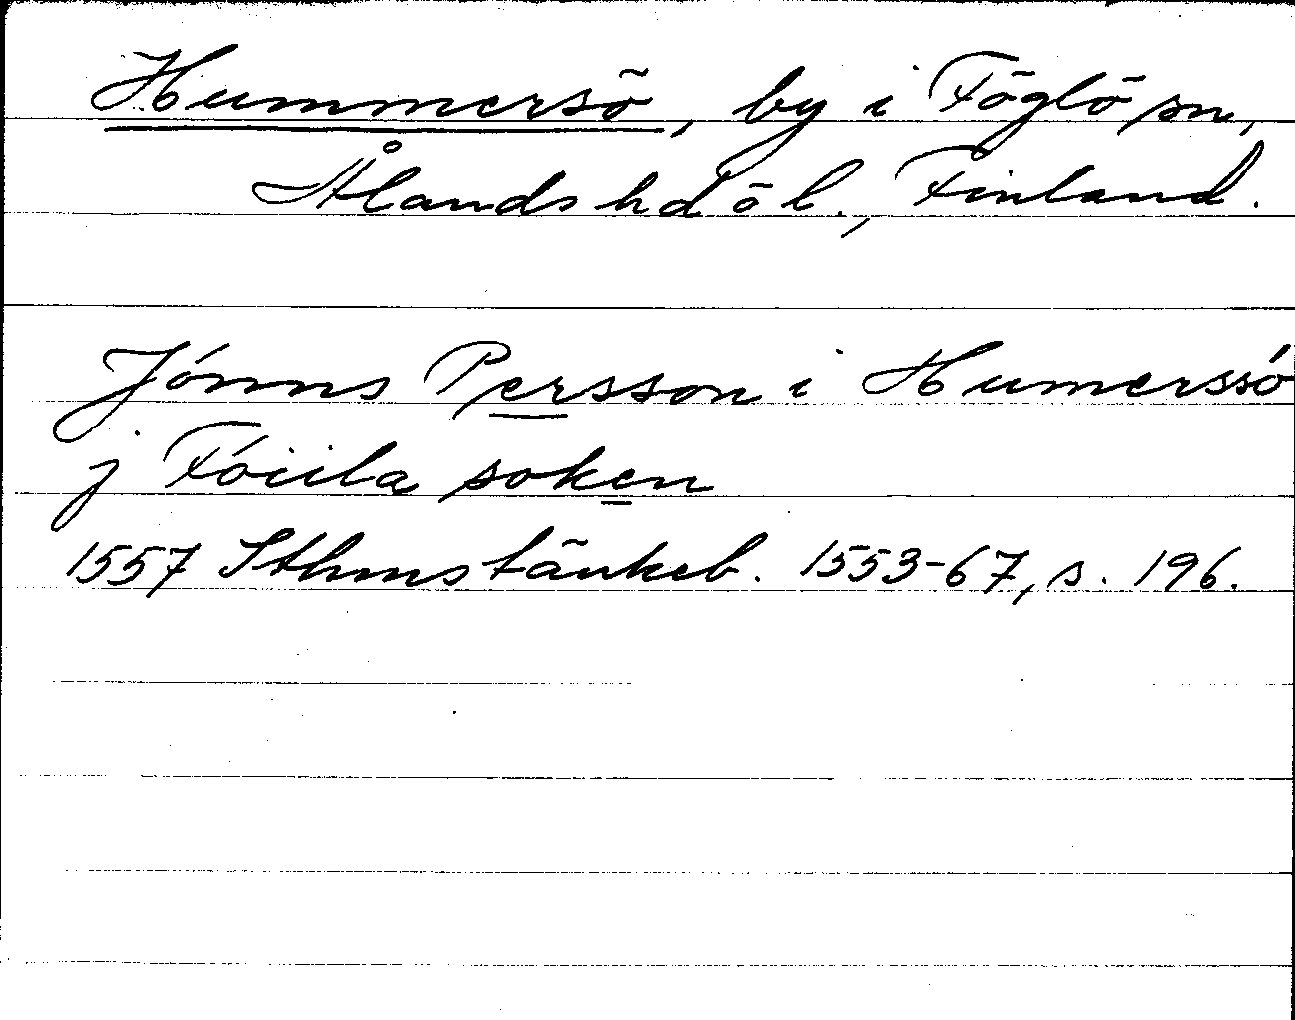 Hummersö, by i Föglö sn,
Ålands hd ö l., Finland.
Jónns Persson i Humerssó
j Fóiila soken
1557 Sthms tänkeb. 1553-67, s. 196.